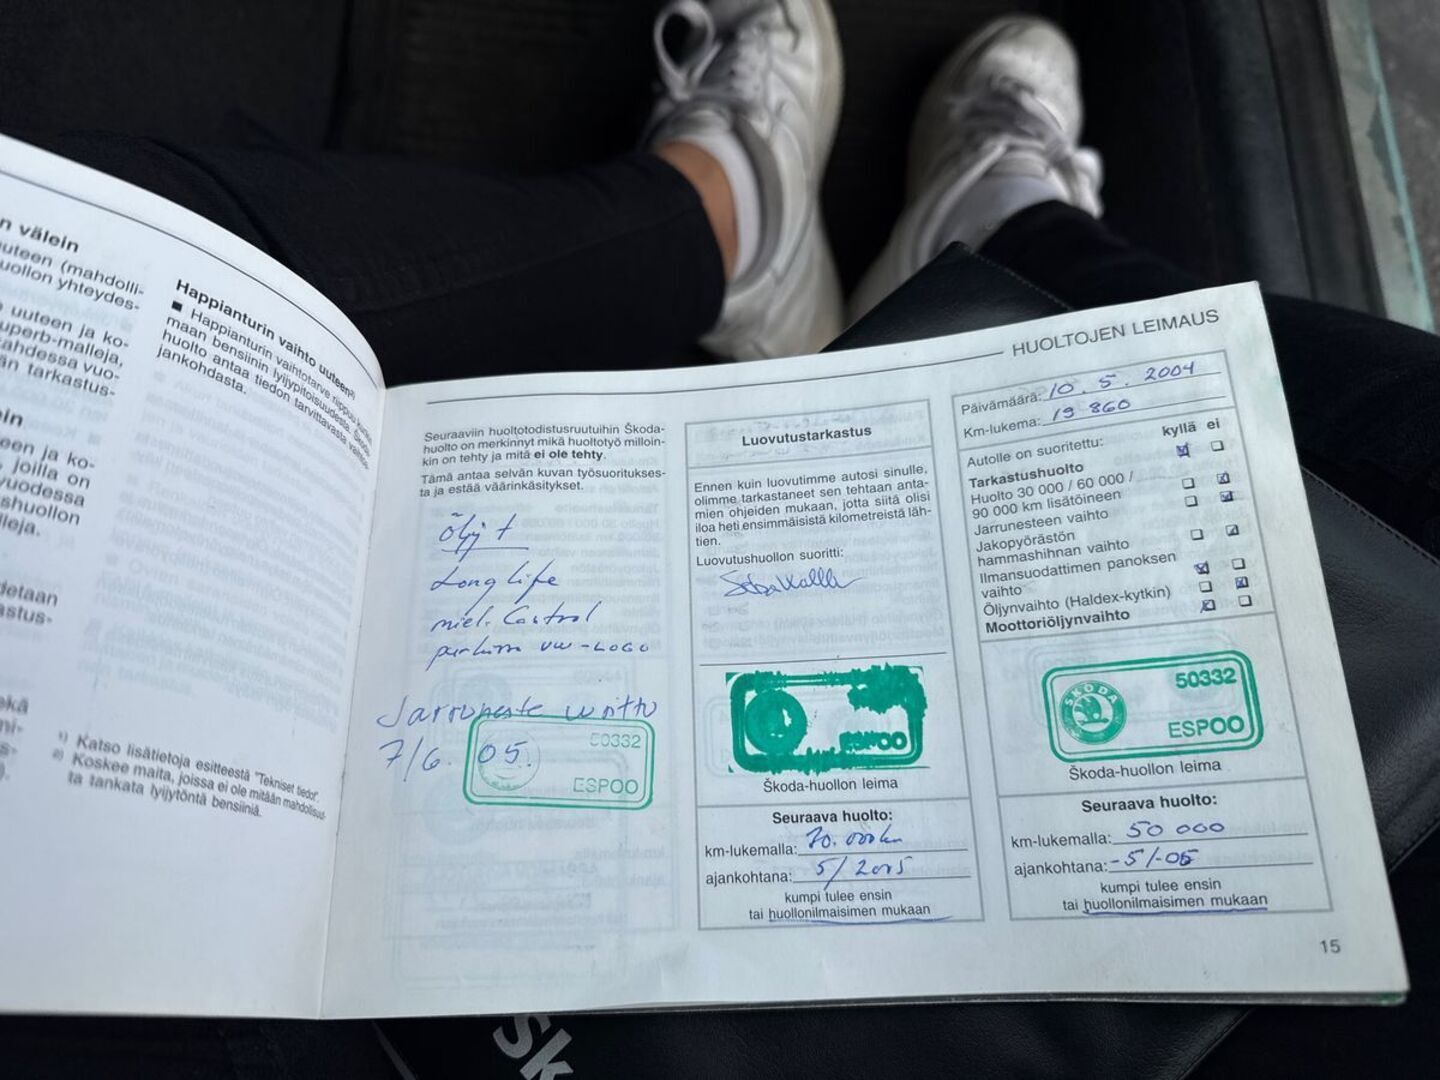 n välein
uuteen (mahdolli-
uollon yhteydes-
uuteen ja ko-
uperb-malleja,
kahdessa vuo-
än tarkastus-
ein
een ja ko-
joilla on
vuodessa
shuollon
lleja.
detaan
astus-
ekä
mi-
Happianturin vaihto uuteen²⁾
■ Happianturin vaihtotarve riippuu
maan bensiinin lyijypitoisuudesta. Škoda-
huolto antaa tiedon tarvittavasta vaihto-
jankohdasta.
¹⁾ Katso lisätietoja esitteestä "Tekniset tiedot".
²⁾ Koskee maita, joissa ei ole mitään mahdollisuut-
ta tankata lyijytöntä bensiiniä.
HUOLTOJEN LEIMAUS
Seuraaviin huoltotodistusruutuihin Škoda-
huolto on merkinnyt mikä huoltotyö milloin-
kin on tehty ja mitä ei ole tehty.
Tämä antaa selvän kuvan työsuoritukses-
ta ja estää väärinkäsitykset.
Öljyt
Long Life
miel. Castrol
purkissa VW-LOGO
Jarruneste
7/6. 05.
50332
ESPOO
Luovutustarkastus
Ennen kuin luovutimme autosi sinulle,
olimme tarkastaneet sen tehtaan anta-
mien ohjeiden mukaan, jotta siitä olisi
iloa heti ensimmäisistä kilometreistä läh-
tien.
Luovutushuollon suoritti:
ESPOO
Škoda-huollon leima
Seuraava huolto:
km-lukemalla: 30.000km
ajankohtana: 5/2005
kumpi tulee ensin
tai huollonilmaisimen mukaan
Päivämäärä: 10. 5. 2004
Km-lukema: 19 860
Autolle on suoritettu: kyllä ei
Tarkastushuolto
Huolto 30 000 / 60 000 /
90 000 km lisätöineen
Jarrunesteen vaihto
Jakopyörästön
hammashihnan vaihto
Ilmansuodattimen panoksen
vaihto
Öljynvaihto (Haldex-kytkin)
Moottoriöljynvaihto
ŠKODA
50332
ESPOO
Škoda-huollon leima
Seuraava huolto:
km-lukemalla: 50 000
ajankohtana: -5/-05
kumpi tulee ensin
tai huollonilmaisimen mukaan
15
Šk